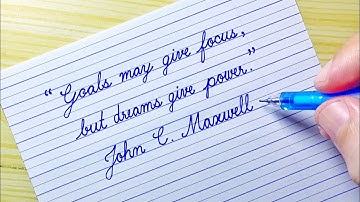 “Goals may give focus,
but dreams give power.”
John C. Maxwell